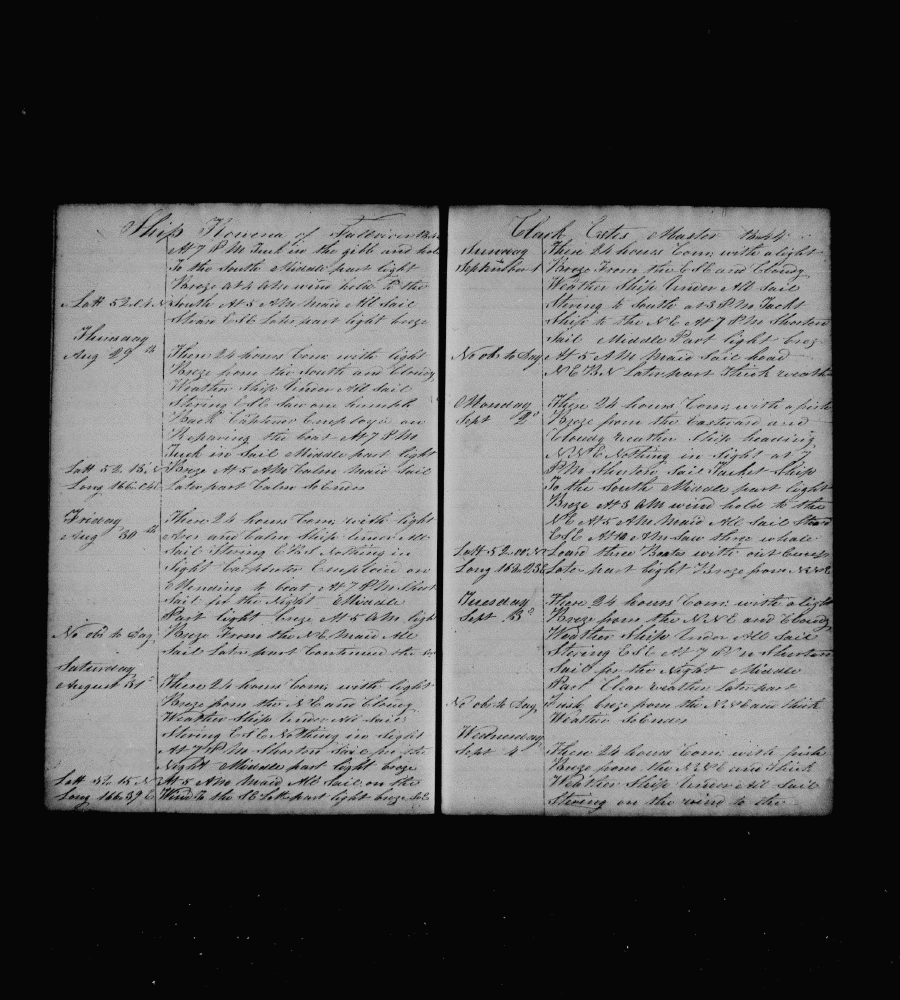 Ship Rowena of Fallriver
At 7 P M Tuck in the gibb and
To the South Middle part light
Breze At 4 Am wind held to the
Latt 52.04 N South At 5 A M Maid All Sail
E S E Later part light breze
Thursday
Aug 29th These 24 hours Com with light
Breze from the South and Cloudy
Weather Ship Under All Sail
Stering E S E Saw one humph
Back Captuno Employd on
Reparing the boat At 7 P M
Tuck in Sail Middle part light
Latt 52.15 N Breze At 5 A M Calm Maid Sail
Long 166. Later part Calm So Ends
Friday
Aug 30th These 24 hours Com with light
Airs and Calm Ship Under All
Sail Stering Nothing in
Sight Employed on
Mending to boat At 7 P M Short
Sail for the Night Middle
Part light breze At 5 A M light
No obs to Day Breze From the N E Maid All
Sail Later part Continued the
Saturday
August 31st These 24 hours Com with light
Breze from the N E and Cloudy
Weather Ship Under All Sail
Stering E S E Nothing in Sight
At 7 P M Shorten Sail for the
Night Middle part light breze
Latt 52.15 N At 5 A M Maid All Sail on the
Long 166.39 E Wind To the S E Latter part light breze
Clark Estes Master 1844
Sunday These 24 hours Com with a light
September 1 Breze From the E S E and Cloudy
Weather Ship Under All Sail
Stering to South at 3 P M Tackt
Ship to the N E At 7 P M Shorten
Sail Middle Part light brez
No obs to Day At 5 A M Maid Sail head
N E B N Later part Thick weather
Monday These 24 hours Com with a frish
Sept 2d Breze from the Eastward and
Cloudy weather Ship heading
N N E Nothing in Sight at 7
P M Shorten Sail Tacket Ship
To the South Middle part light
Breze At 3 A M wind held to the
N E At 5 A M Maid All Sail
E S E At 10 A M Saw three whale
Latt 52.00 N Loard three Boats with out
Long Later part light Breze from N N E
Tuesday These 24 hours Com with a light
Sept 3d Breze from the N N E and Cloudy
Weather Ship Under All Sail
Stering E S E At 7 P M Shorten
Sail for the Night Middle
Part Clear weather Later part
No obs to Day Frish breze from the N N E and thick
Weather So Ends
Wednesday
Sept 4 These 24 hours Com with frish
Breze from the N N E and Thick
Weather Ship Under All Sail
Stering on the wind to the